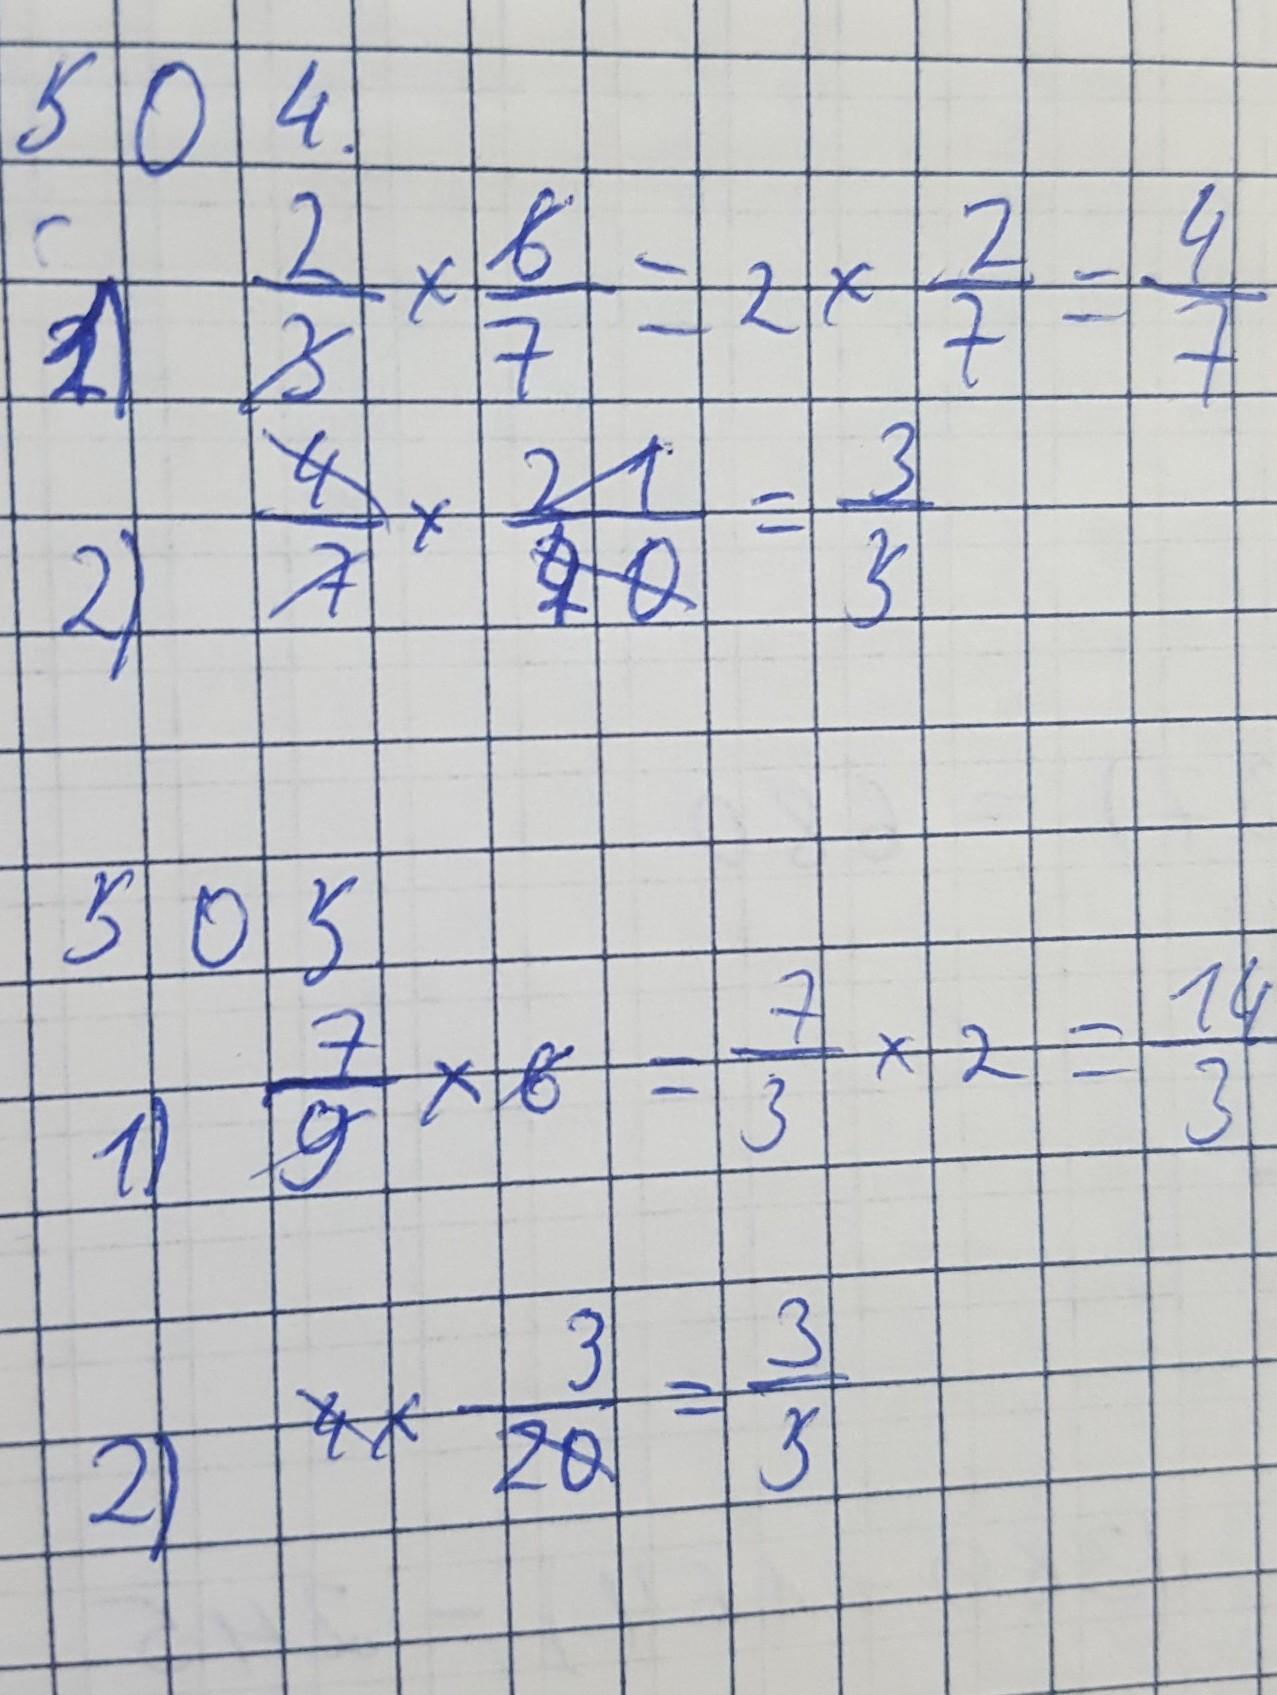 504.
1) 2/3 × 6/7 = 2 × 2/7 = 4/7
2) 4/7 × 21/20 = 3/5
505
1) 7/9 × 6 = 7/3 × 2 = 14/3
2) 4 × 3/20 = 3/5